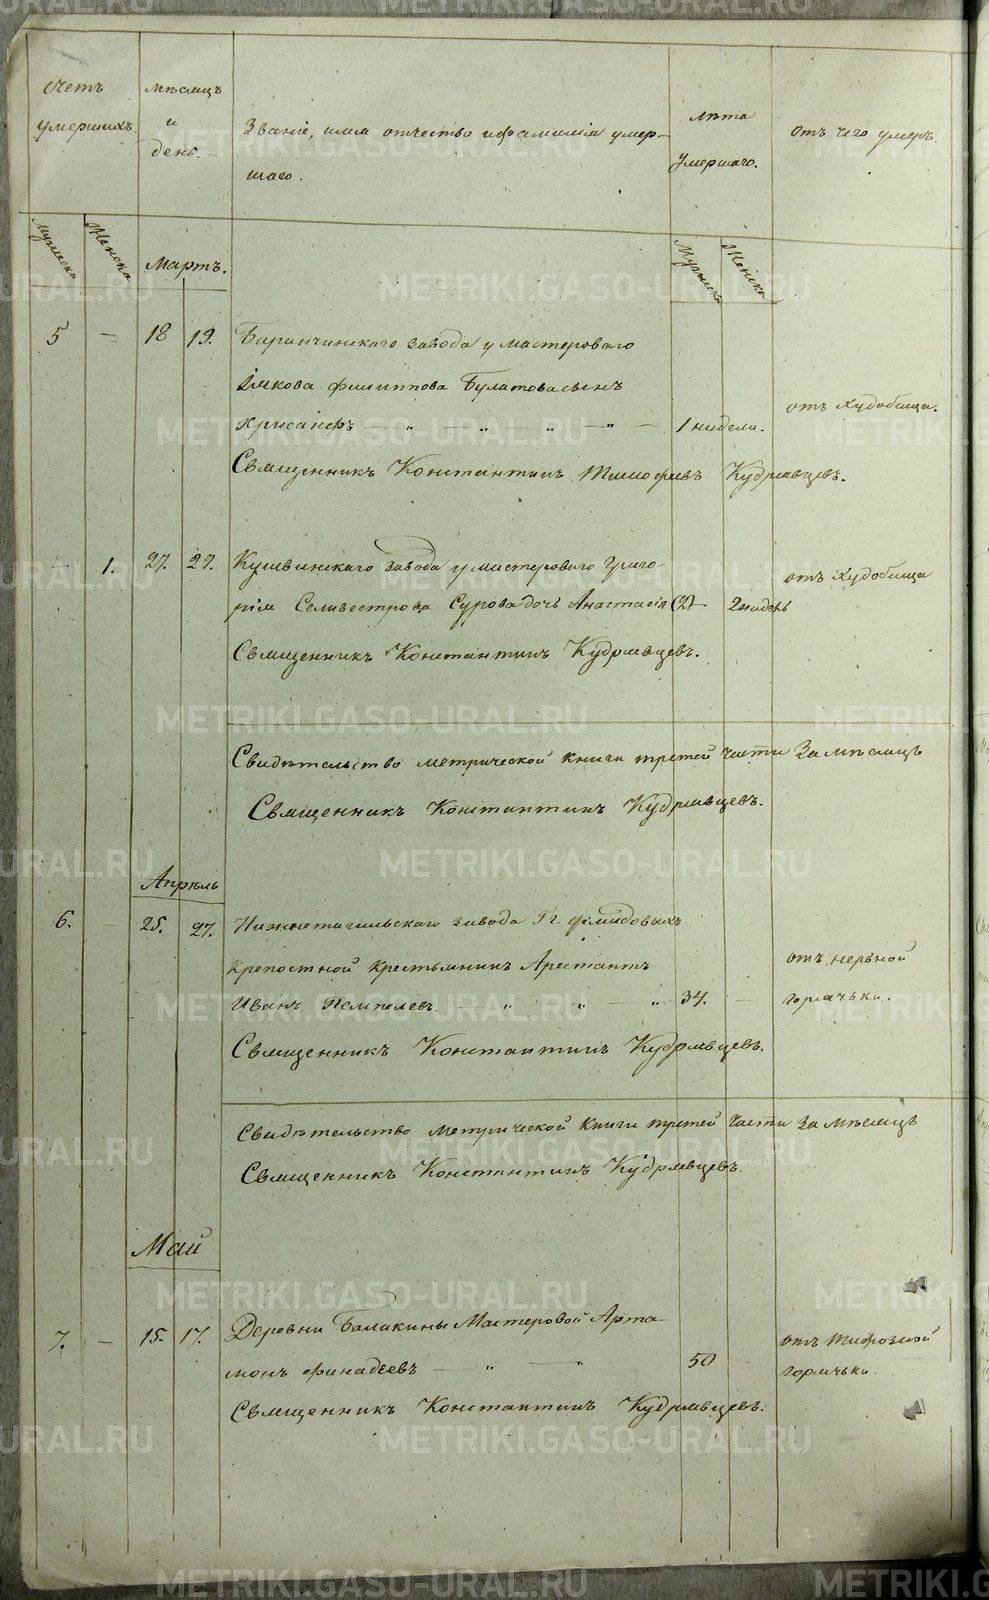 Счетъ умершихъ.
Мѣсяцъ и день.
Званіе, имя отчество и фамилія умер-
шаго.
Лѣта умершаго.
отъ чего умеръ.
Мужеска
Женска
Мартъ.
Мужеска
Женска
5 — 18 19. Баранчинскаго завода у мастероваго
Іякова Филиппова Булатова сынъ
Хрисанфъ — „ — „ „ — „ — 1 недели. отъ худобища.
Священникъ Константинъ Тимофеевъ Кудрявцевъ.
— 1. 27. 29. Кушвинскаго завода у мастероваго Григо-
рія Селивестрова Сурова дочь Анастасія 2 недель отъ худобища
Священникъ Константинъ Кудрявцевъ.
Свидѣтельство метрической книги третей части за мѣсяцъ
Священникъ Константинъ Кудрявцевъ.
Апрѣль
6. — 25. 27. Нижнетагильскаго завода Гг. Демидовыхъ
крепостной крестьянинъ Арестантъ
Иванъ „ „ — „ 34. — отъ нервной горячьки.
Священникъ Константинъ Кудрявцевъ.
Свидѣтельство метрической книги третей части за мѣсяцъ
Священникъ Константинъ Кудрявцевъ.
Май
7. — 15. 17. Деревни Балакины Мастеровой Арта-
монъ Финадеевъ — „ — „ 50 отъ тифозной горячьки.
Священникъ Константинъ Кудрявцевъ.
METRIKI.GASO-URAL.RU